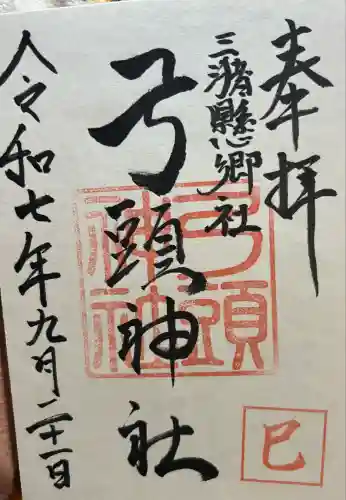 奉拝
三潴縣郷社
弓頭神社
弓頭神社
令和七年九月二十一日
巳